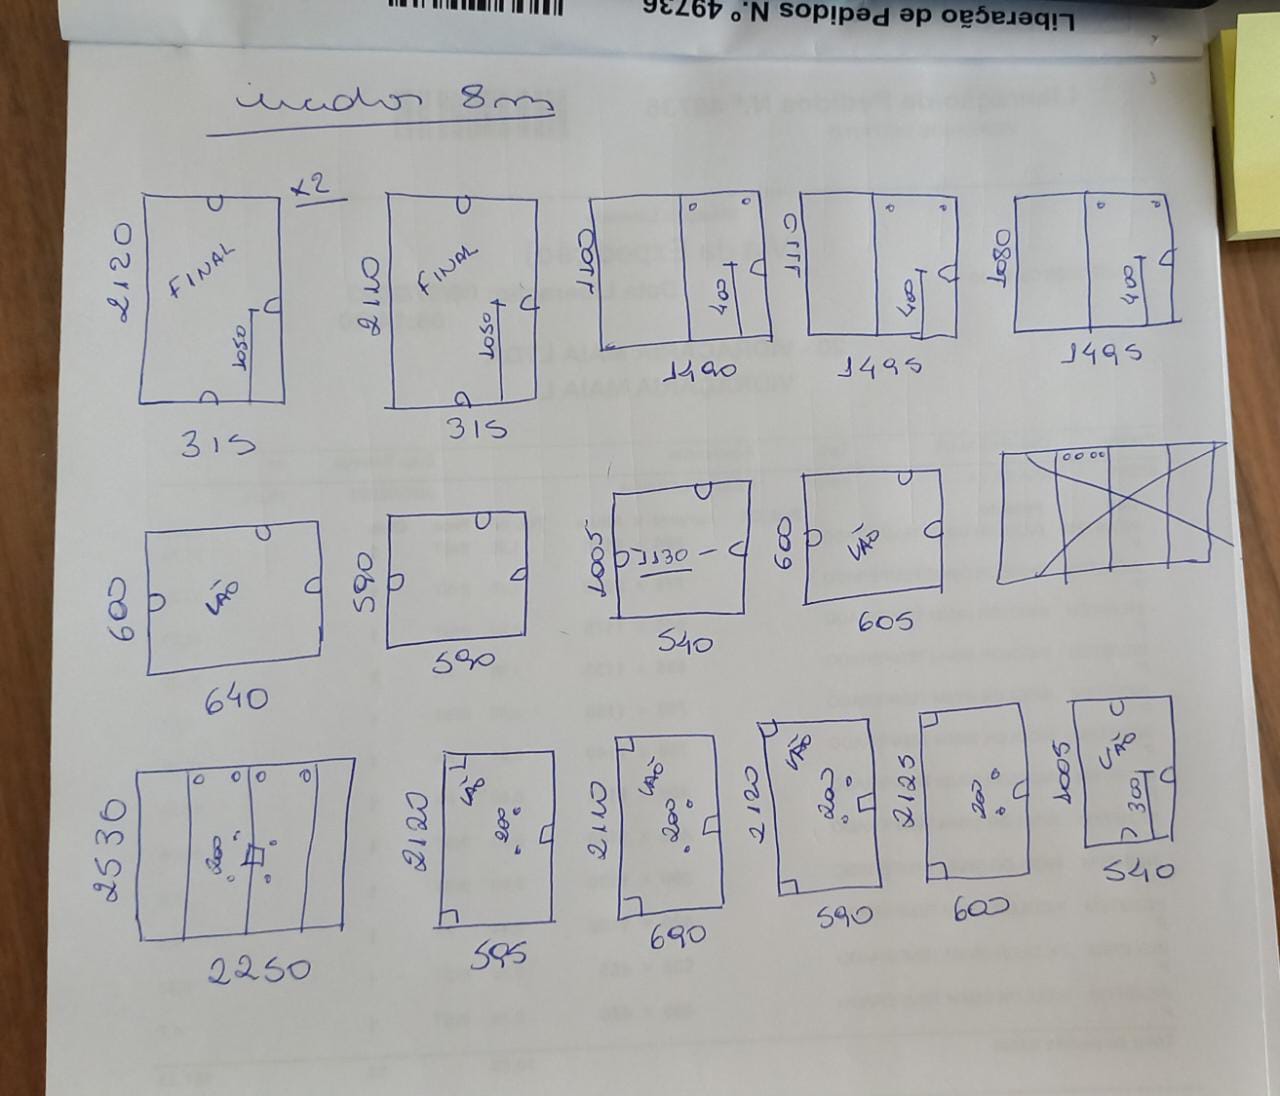 Liberação de Pedidos N.º 49736
incolor 8m
2120
FINAL
1050
315
x2
2110
FINAL
1050
315
1100
400
1490
1110
400
1495
1080
400
1495
600
VÃO
640
590
590
1005
1130
540
600
VÃO
605
2530
200
2250
2120
VÃO
200
595
2110
VÃO
200
690
2120
VÃO
200
590
2125
200
600
1005
VÃO
300
540